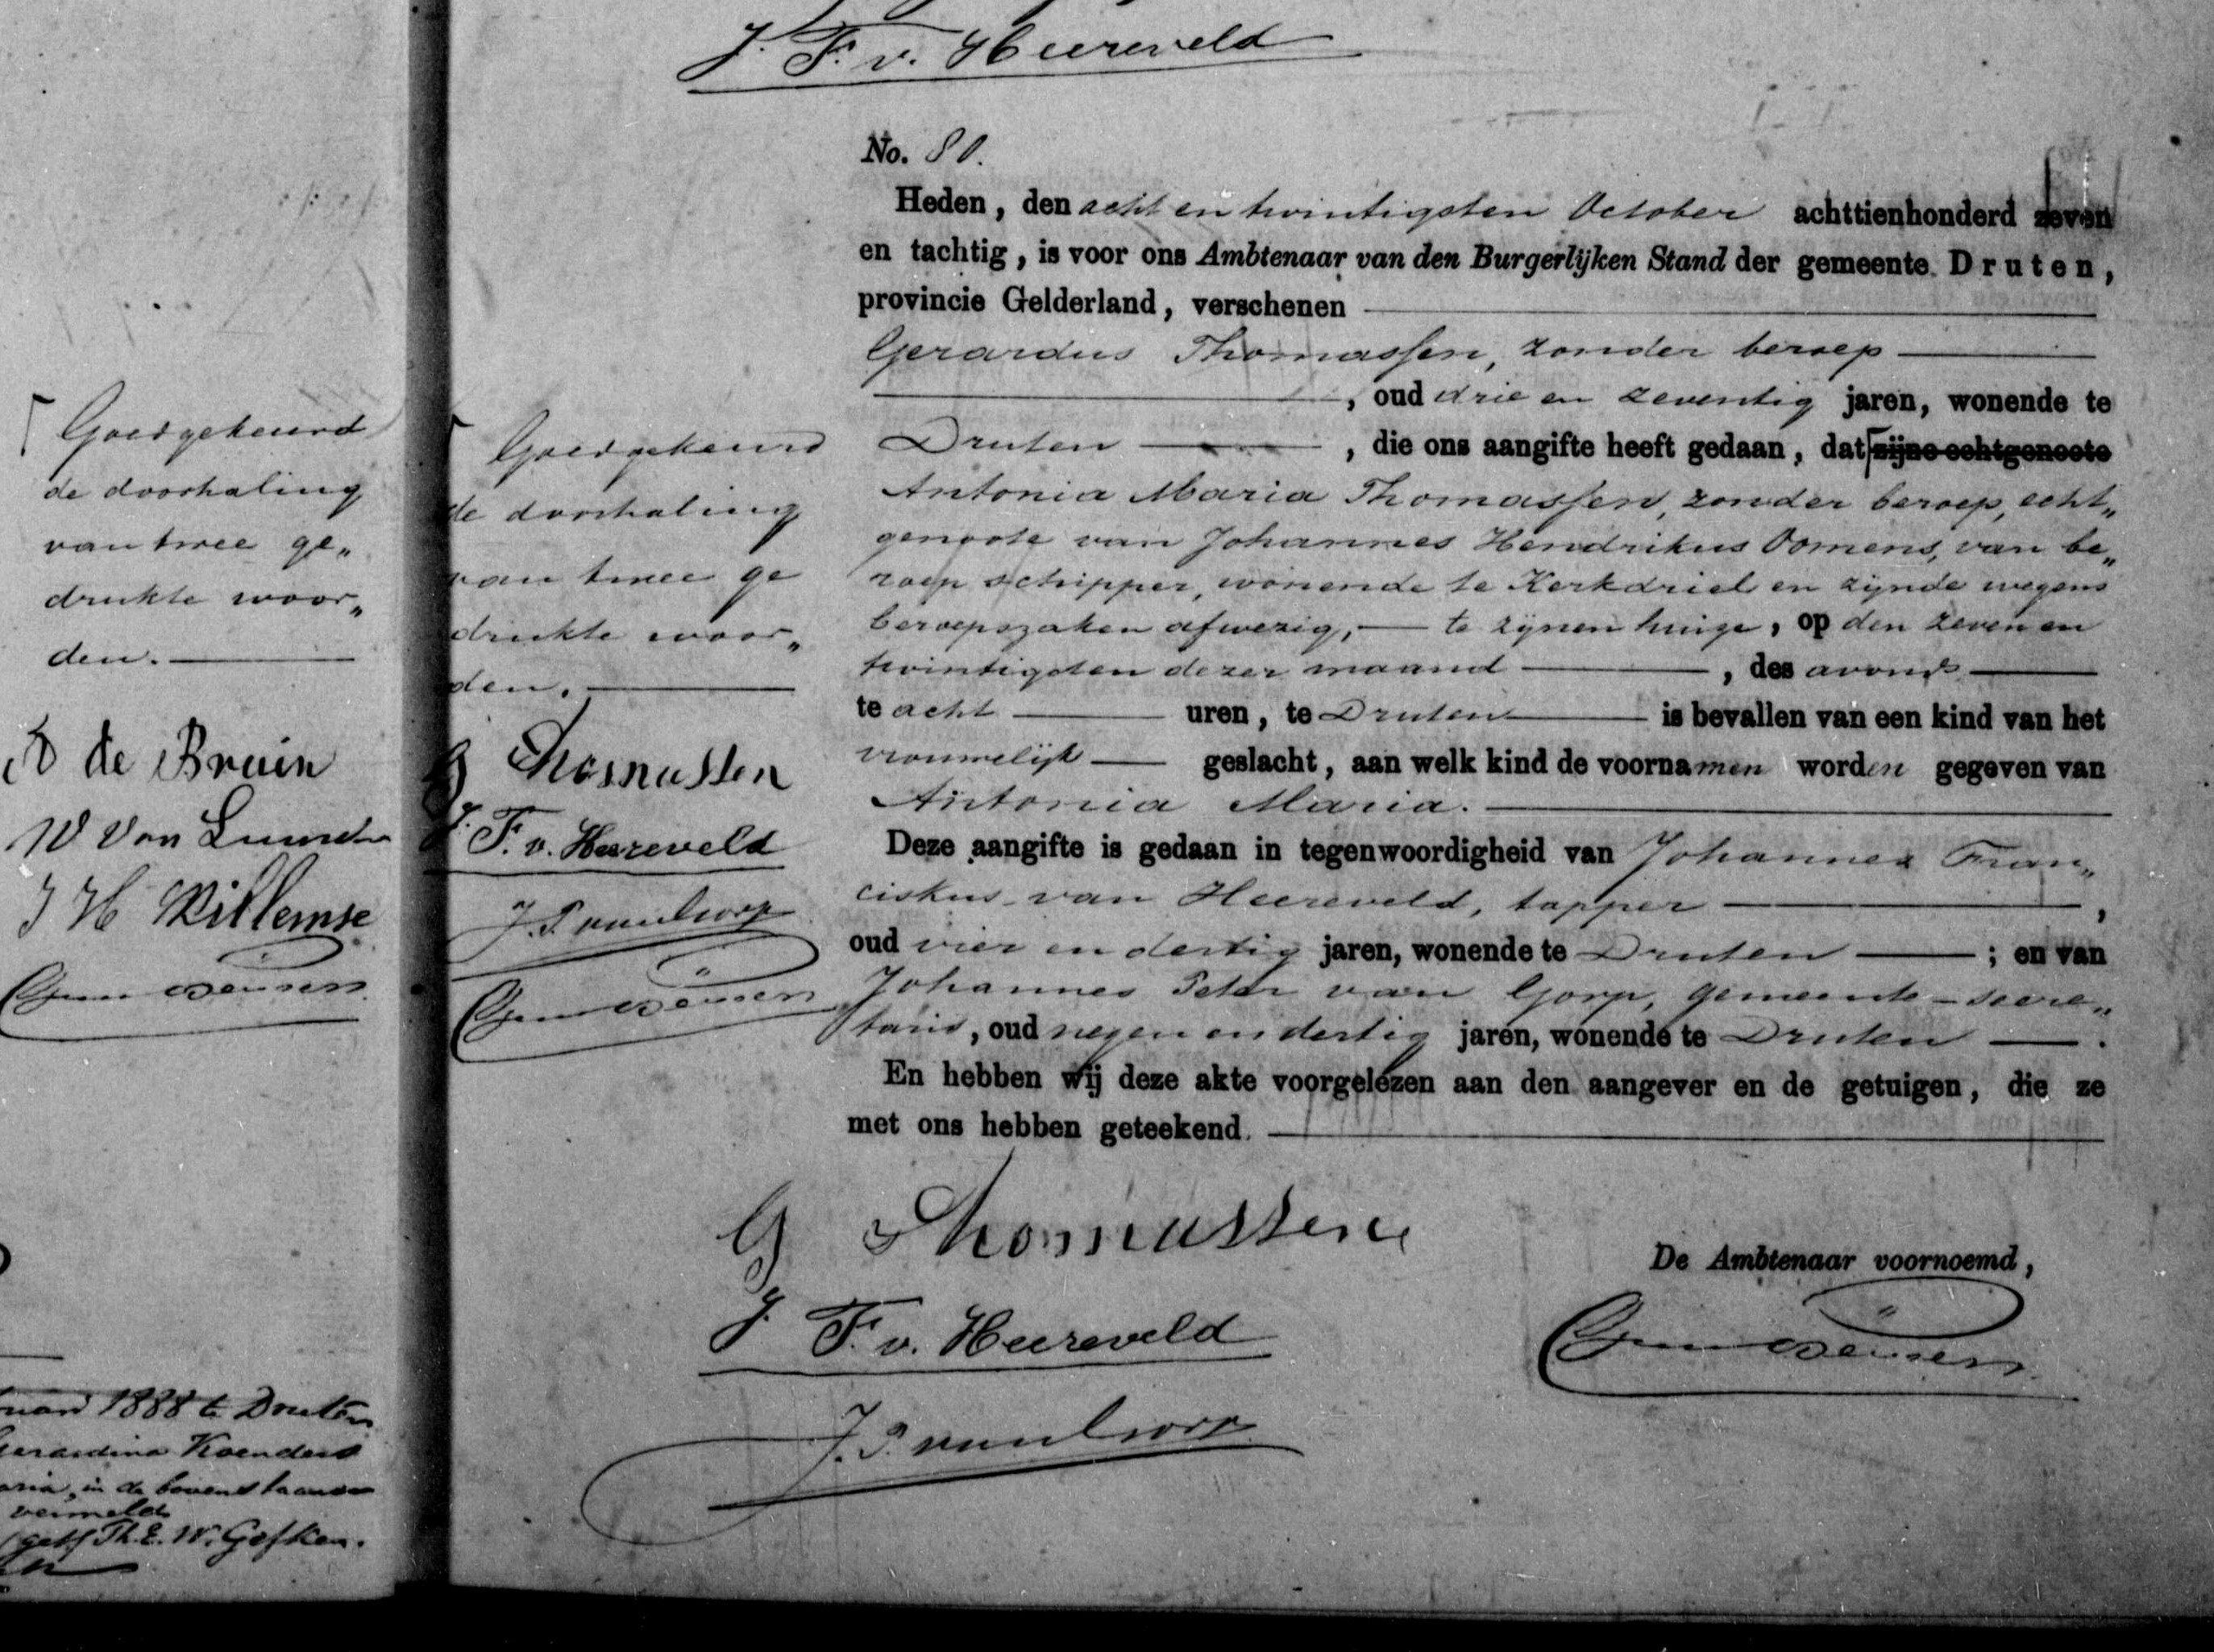 Goedgekeurd
de doorhaling
van twee ge„
drukte woor„
den.
de Bruin
W Van
J H Willemse
1888 te Druten
Gerardina Koenders
in de bovenstaande
vermeld
get/ Th. E. W. Gefken.
J. F. v. Heereveld
Goedgekeurd
de doorhaling
van twee ge
drukte woor„
den.
G Thomassen
J. F. v. Heereveld
J. P. van Gorp
No. 80.
Heden, den acht en twintigsten October achttienhonderd zeven
en tachtig, is voor ons Ambtenaar van den Burgerlijken Stand der gemeente Druten,
provincie Gelderland, verschenen
Gerardus Thomassen, zonder beroep
, oud drie en zeventig jaren, wonende te
Druten , die ons aangifte heeft gedaan, dat zijne echtgenoote
Antonia Maria Thomassen, zonder beroep, echt„
genoote van Johannes Hendrikus Oomens, van be„
roep schipper, wonende te Kerkdriel en zijnde wegens
beroepszaken afwezig, te zijnen huize, op den zeven en
twintigsten dezer maand , des avonds
te acht uren, te Druten is bevallen van een kind van het
vrouwelijk geslacht, aan welk kind de voornamen worden gegeven van
Antonia Maria.
Deze aangifte is gedaan in tegenwoordigheid van Johannes Fran„
ciskus van Heereveld, tapper ,
oud vier en dertig jaren, wonende te Druten ; en van
Johannes Peter van Gorp, gemeente-secre„
taris, oud negen en dertig jaren, wonende te Druten .
En hebben wij deze akte voorgelezen aan den aangever en de getuigen, die ze
met ons hebben geteekend.
G Thomassen
De Ambtenaar voornoemd,
J. F. v. Heereveld
J. P. van Gorp